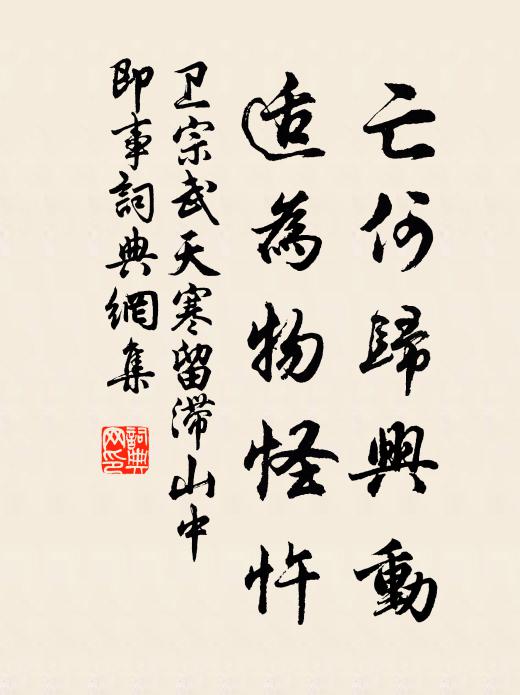 亡何歸興動
适為物怪忤
卫宗武天寒留滯山中
即事詞典網集
詞典网印